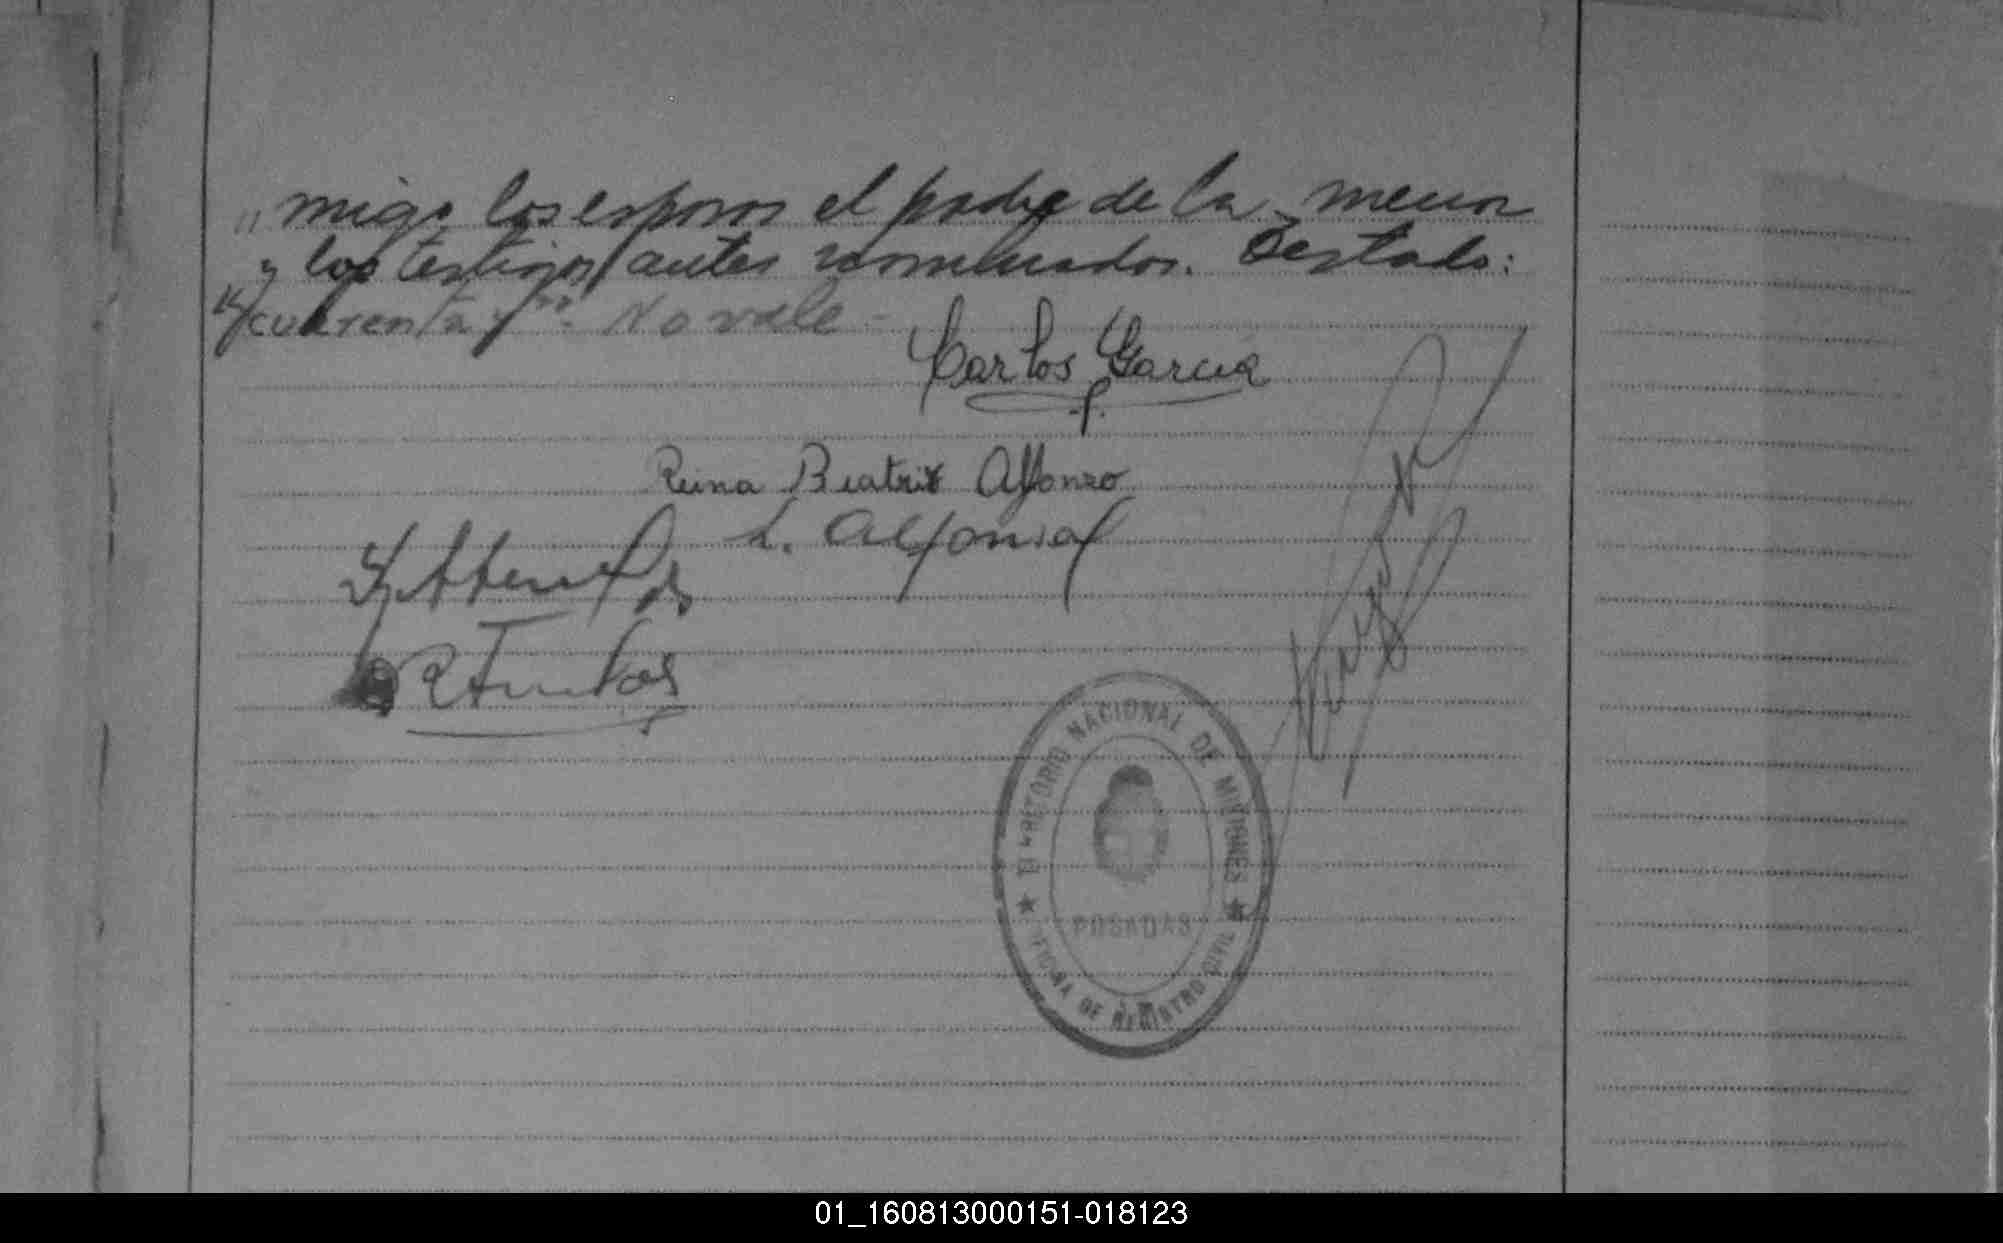 " migo los esposos el padre de la menor
y los testigos antes nombrados. Testado:
"cuarenta y" No vale -
Carlos Garcia
Reina Beatrix Alfonzo
L. Alfonso
TERRITORIO NACIONAL DE MISIONES
POSADAS
OFICINA DE REGISTRO CIVIL
01_160813000151-018123